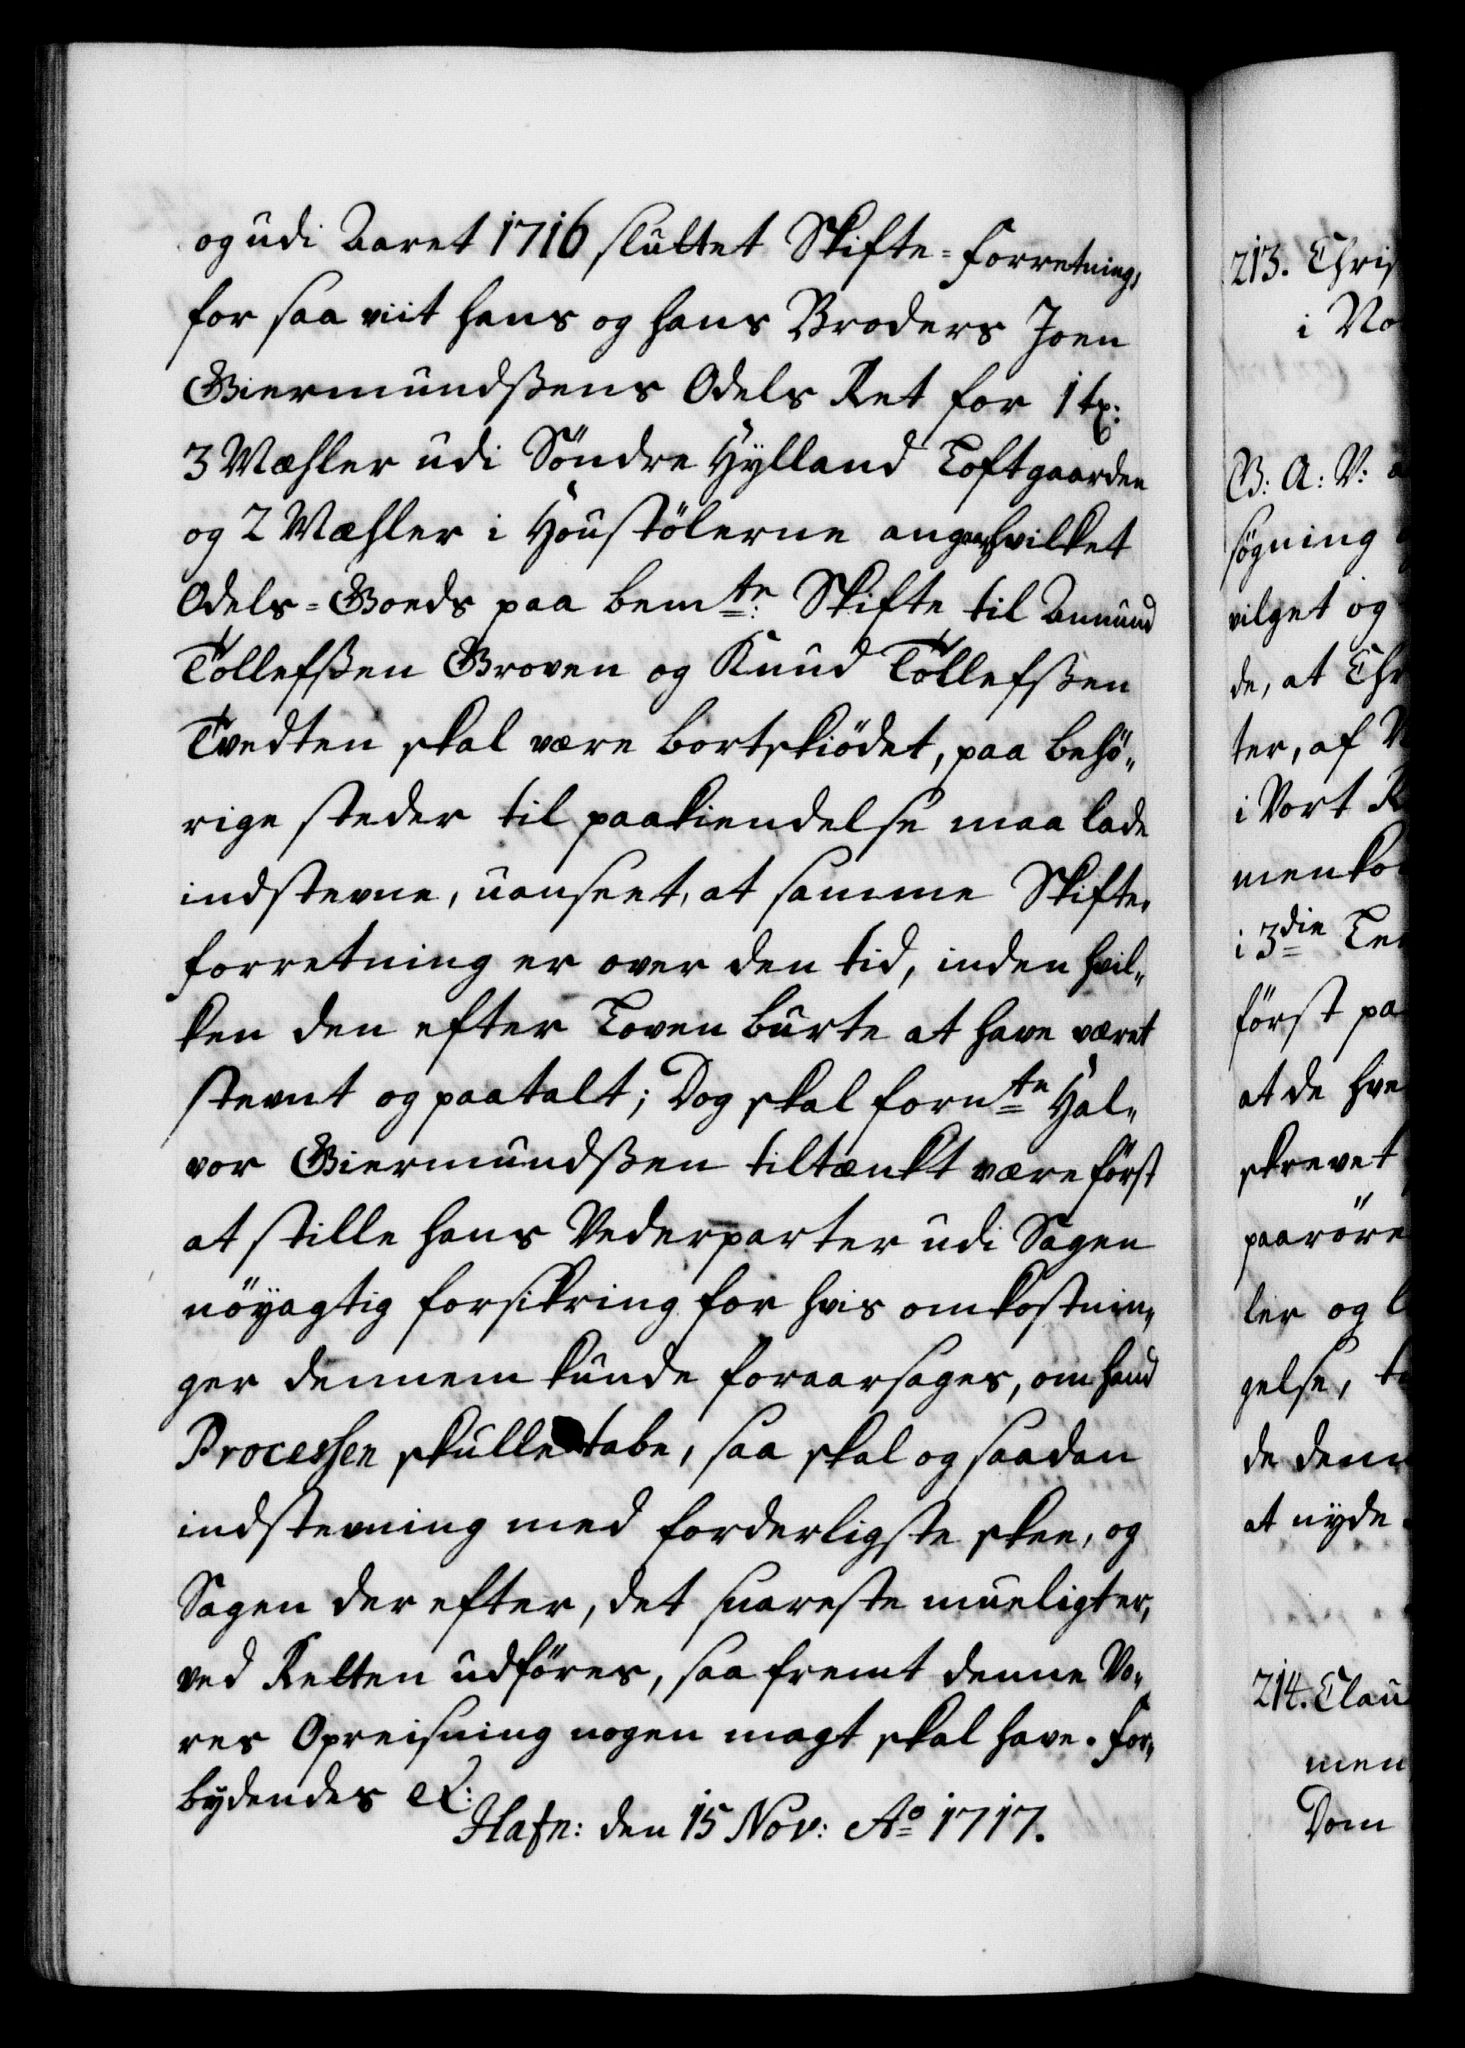 og udi Aaret 1716 sluttet Skifte-forretning,
for saa viit hans og hans Broders Joen
Giermundßens Odels Ret for 1 tx:
3 Mæhler udi Söndre Hylland Loftgaarden
og 2 Mæhler i Houstölerne angaar, hvilket
Odels-Goeds paa bemte: Skifte til Amund
Tollefßen Groven og Knud Tollefßen
Tvedten skal være bortskiödet, paa behö„
rige steder til paakiendelse maa lade
indstevne, uanseet, at samme Skifte„
forretning er over den tid, inden hvil„
ken den efter Loven burte at have været
stevnt og paatalt; Dog skal fornte Hal„
vor Giermundßen tiltænkt være först
at stille hans Vederparter udi Sagen
nöyagtig forsikring for hvis omkostnin„
ger dennem kunde foraarsages, om hand
Processen skulle tabe, saa skal og saadan
indstevning med forderligste skee, og
Sagen der efter, det snareste mueligt er,
ved Retten udföres, saa fremt denne Vo„
res Opreisning nogen magt skal have. For„
bydendes etc:
Hafn: den 15 Nov: Ao 1717.
213. Chris
i No
G: A: V: a
søgning
vilget og
de, at Chr
ter, af
i Vort R
menko
i 3die Le
först pa
at de hve
skrevet
paaröre
ler og l
gelse, t
de denn
at nyde
214. Clau
men
Dom